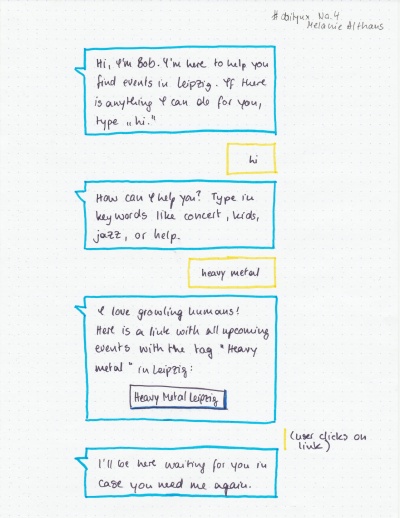 #dailyux No.4
Melanie Althaus
Hi, I'm Bob. I'm here to help you
find events in Leipzig. If there
is anything I can do for you,
type „hi."
hi
How can I help you? Type in
keywords like concert, kids,
jazz, or help.
heavy metal
I love growling humans!
Here is a link with all upcoming
events with the tag "Heavy
metal" in Leipzig:
Heavy Metal Leipzig
(user clicks on
link)
I'll be here waiting for you in
case you need me again.